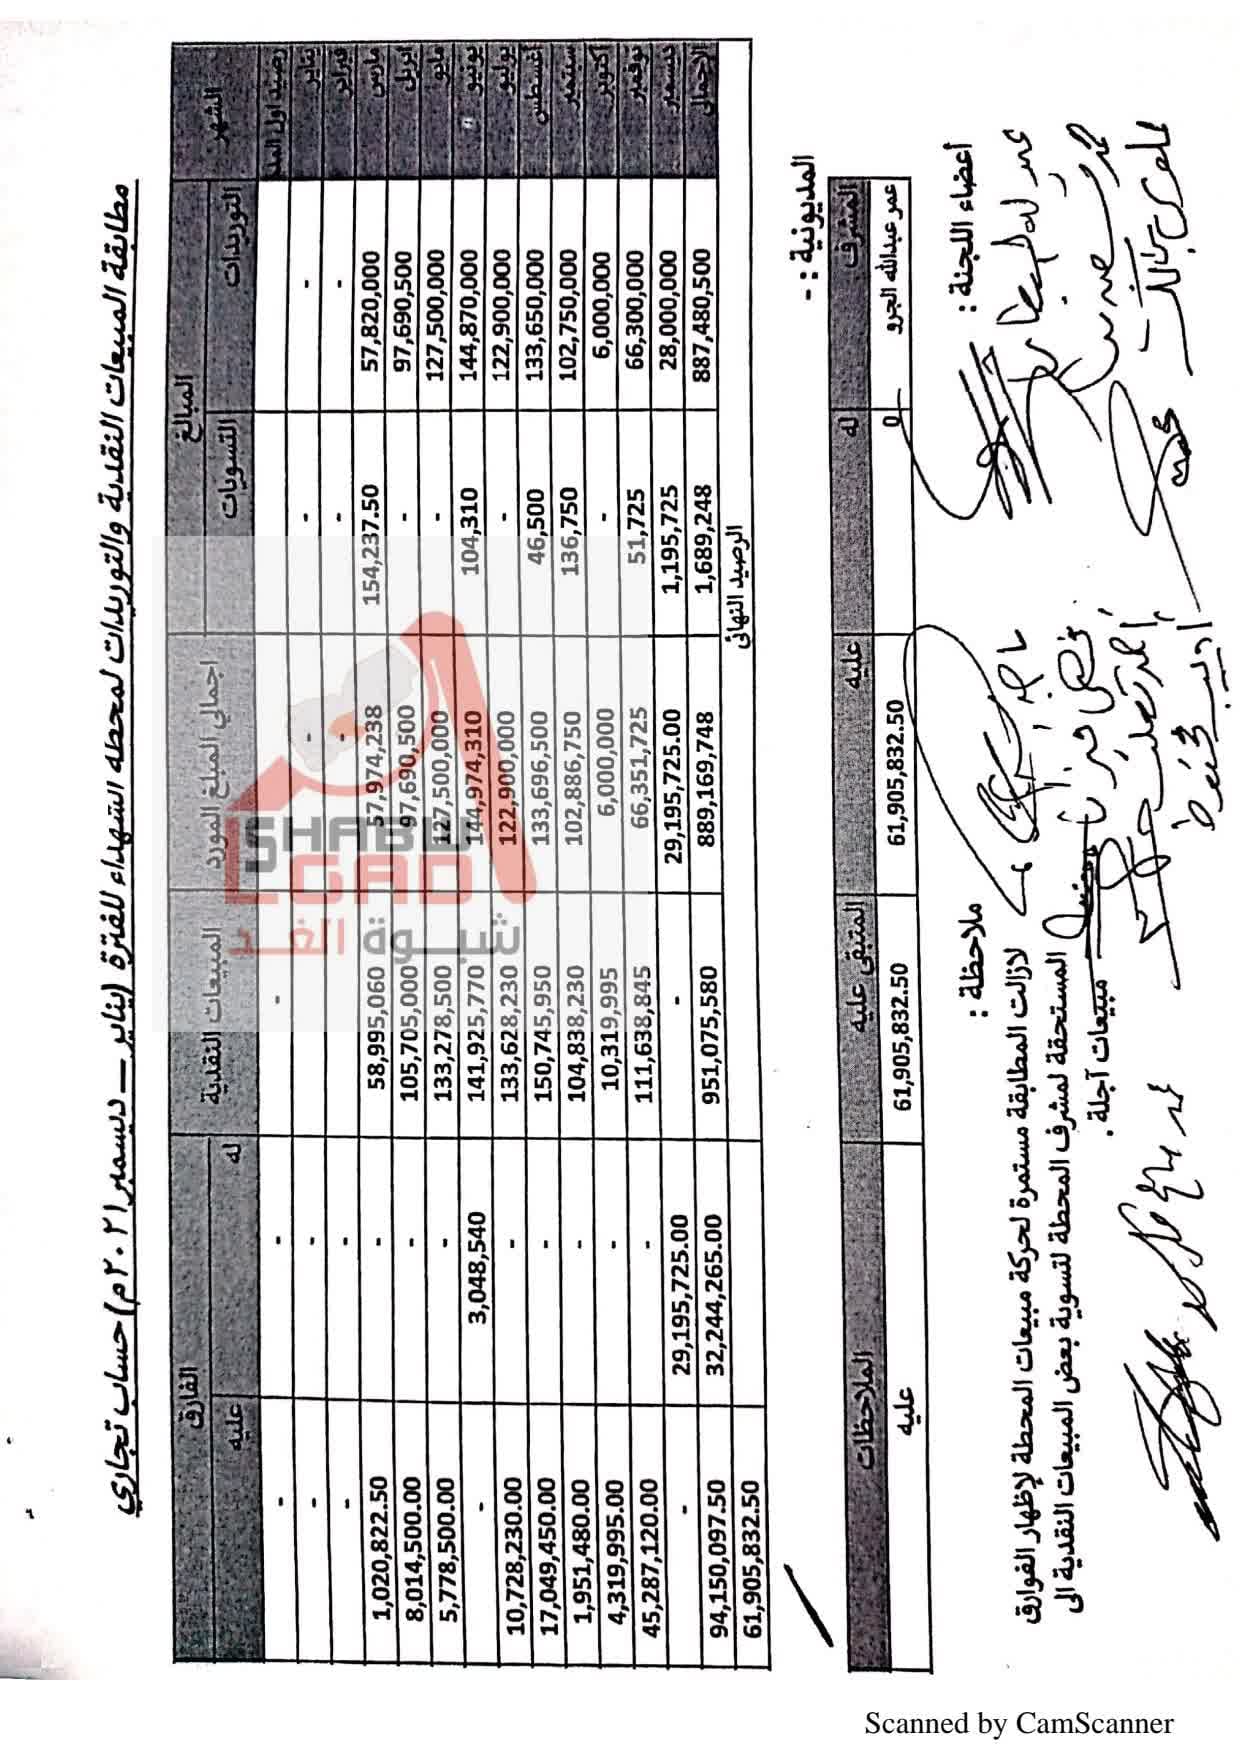 مطابقة المبيعات النقدية والتوريدات لمحطة الشهداء للفترة (يناير – ديسمبر ٢٠٢١م) حساب تجاري
الشهر المبالغ المبيعات النقدية الفارق
التوريدات التسويات اجمالي المبلغ المورد له عليه
رصيد اول المدة - - - - - -
يناير - - - - -
فبراير - - - - -
مارس 57,820,000 154,237.50 57,974,238 58,995,060 - 1,020,822.50
ابريل 97,690,500 - 97,690,500 105,705,000 - 8,014,500.00
مايو 127,500,000 - 127,500,000 133,278,500 - 5,778,500.00
يونيو 144,870,000 104,310 144,974,310 141,925,770 3,048,540 -
يوليو 122,900,000 - 122,900,000 133,628,230 - 10,728,230.00
أغسطس 133,650,000 46,500 133,696,500 150,745,950 - 17,049,450.00
سبتمبر 102,750,000 136,750 102,886,750 104,838,230 - 1,951,480.00
أكتوبر 6,000,000 - 6,000,000 10,319,995 - 4,319,995.00
نوفمبر 66,300,000 51,725 66,351,725 111,638,845 - 45,287,120.00
ديسمبر 28,000,000 1,195,725 29,195,725.00 - 29,195,725.00 -
الاجمالي 887,480,500 1,689,248 889,169,748 951,075,580 32,244,265.00 94,150,097.50
الرصيد النهائي 61,905,832.50
SHABWA
ALGAD
شبوة الغد
المديونية :-
المشرف له عليه المتبقى عليه الملاحظات
عمر عبدالله الجرو 0 61,905,832.50 61,905,832.50 عليه
أعضاء اللجنة :
ملاحظة :
لازالت المطابقة مستمرة لحركة مبيعات المحطة لإظهار الفوارق
المستحقة لمشرف المحطة لتسوية بعض المبيعات النقدية الى
مبيعات آجلة .
Scanned by CamScanner